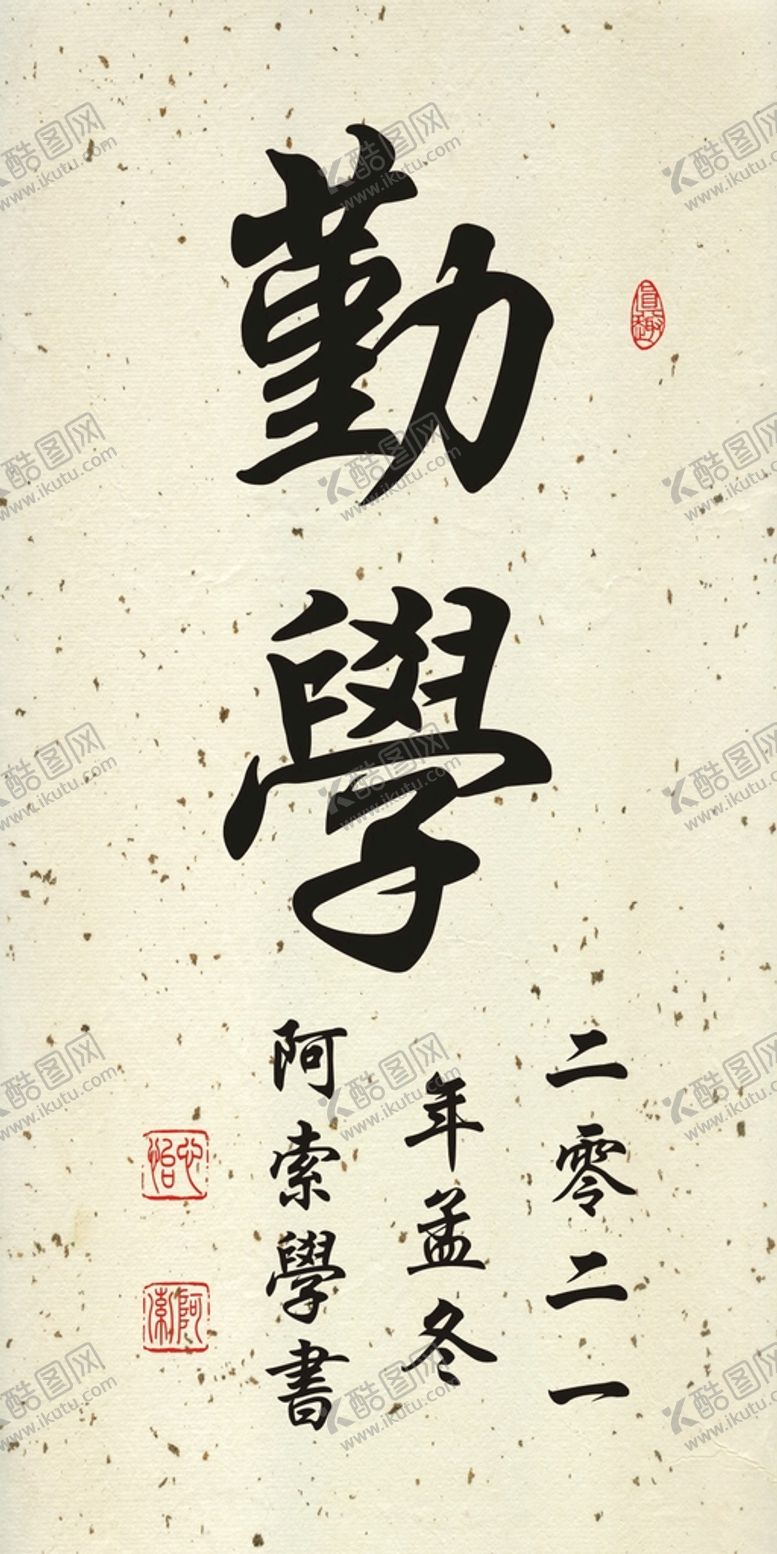 勤
學
二零二一
年孟冬
阿索學書
酷图网
www.ikutu.com